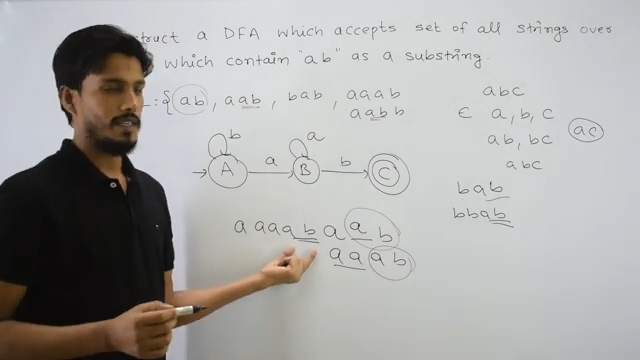 struct a DFA which accepts set of all strings over
which contain "ab" as a substring.
L:{ ab, aab, bab, aaab
aabb
abc
ϵ a, b, c
ab, bc ac
abc
bab
bbab
b a
A a B b C
a a a a b a a b
a a a b